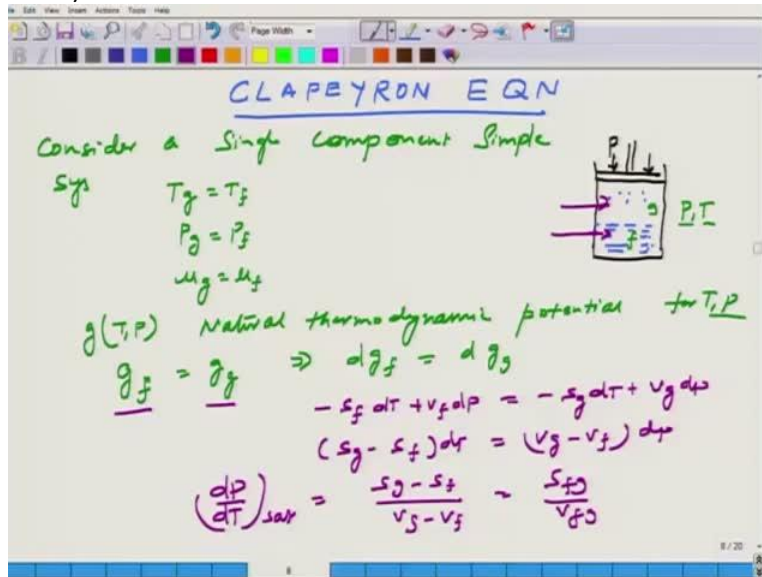 Edit View Insert Actions Tools Help
Page Width
B I
CLAPEYRON EQN
Consider a Single component Simple
Sys
T_g = T_f
P_g = P_f
μ_g = μ_f
P
g
f
P,T
g(T,P) Natural thermodynamic potential for T,P
g_f = g_g ⇒ dg_f = dg_g
-s_f dT + v_f dp = -s_g dT + v_g dp
(s_g - s_f) dT = (v_g - v_f) dp
(dP/dT)_sat = (s_g - s_f)/(v_g - v_f) = s_fg/v_fg
8/20
8